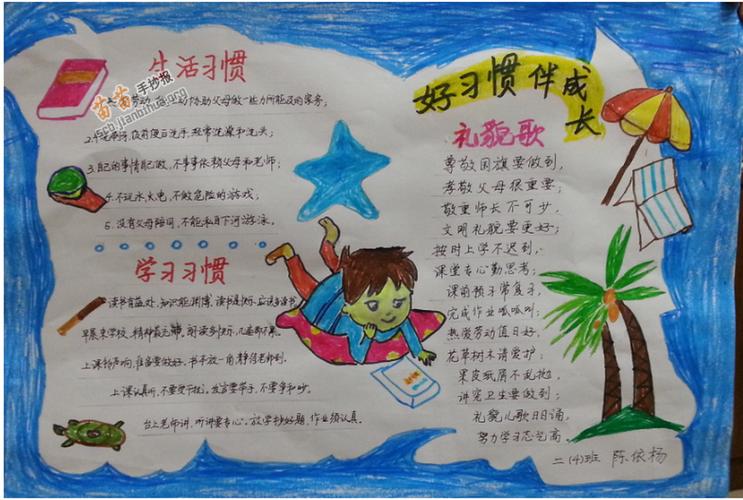 生活习惯
苗苗手抄报
劳动,协助父母做一些力所能及的家务;
饭前便后洗手,经常洗澡和洗头;
3.自己的事情自己做,不事事依赖父母和老师;
4.不玩水、火、电,不做危险的游戏;
5.没有父母陪同,不能私自下河游泳。
学习习惯
读书有益处,知识能渊博,读书是快乐,应该多读书
早晨来学校,精神最无
上课铃声响,准备要做好,书本放一角,静待老师到。
上课认真听,不要受干扰,发言要举手,不要争和吵。
台上老师讲,听讲要专心。放学抄好题,作业须认真。
好习惯伴成长
礼貌歌
尊敬国旗要做到,
孝敬父母很重要;
敬重师长不可少,
文明礼貌要更好;
按时上学不迟到,
课堂专心勤思考;
课前预习常复习,
完成作业呱呱叫;
热爱劳动值日好,
花草树木请爱护;
果皮纸屑不乱抛,
讲究卫生要做到;
礼貌儿歌日日诵,
努力学习志气高。
二(4)班 陈依杨